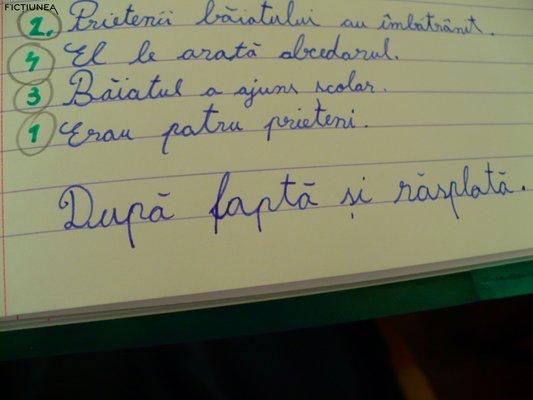 FICTIUNEA
2. Prietenii băiatului au îmbătrânit.
4 El le arată abecedarul.
3 Băiatul a ajuns școlar.
1 Erau patru prieteni.
După faptă și răsplată.